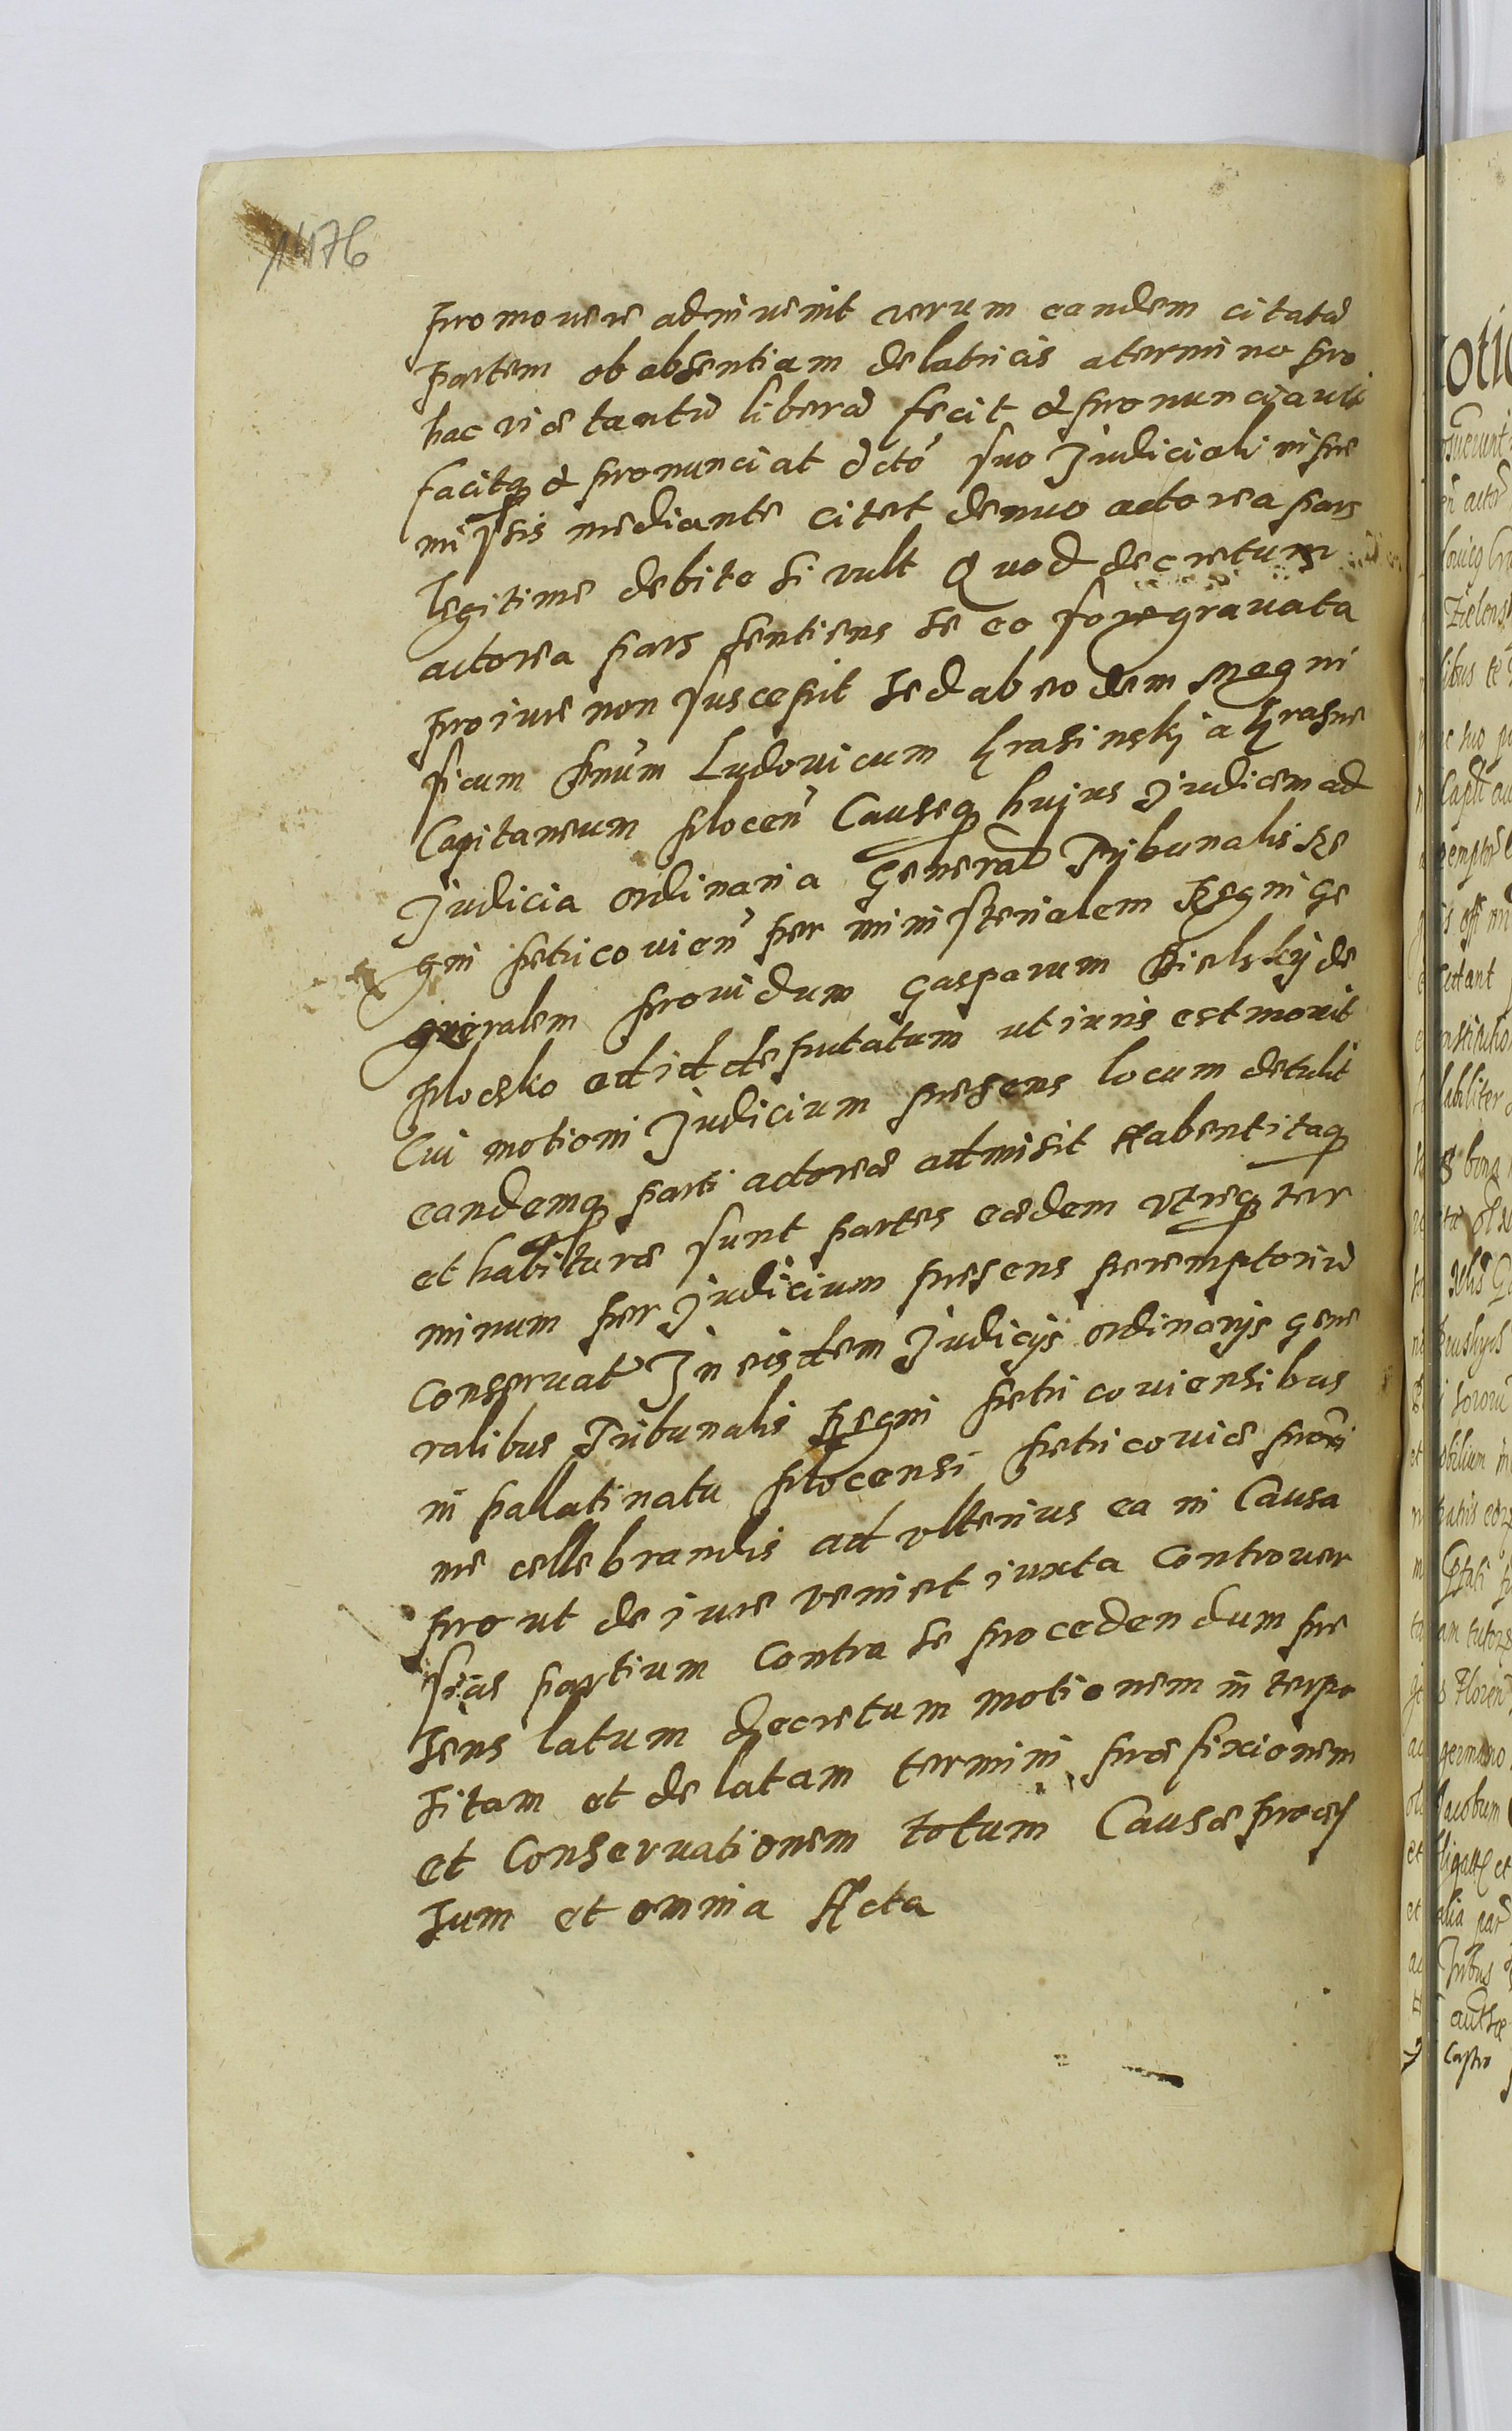 1476
promouere adinuenit verum eandem citatã
partem ob absentiam delatricis a termino pro
hac vice tantũ liberã fecit et pronunciauit
facitq et pronunciat dcto suo Judiciali in pre
missis mediante citet denuo actorea pars
legitime debite si vult Quod decretum
actorea pars sentiens se eo fore grauata
pro iure non suscepit sed ab eodem Magni
ficum Dnum Ludouicum Krasinskj a Krasne
Capitaneum Plocen Causeq huius Judicem ad
Judicia ordinaria General Trybunalis Re
gni Petricouien per ministerialem Regni Ge
neralem prouidum Gasparum Bielskij de
Plocsko ad id deputatum ut iuris est mouit
Cui motioni Judicium presens locum detulit
eandemq parti actoreæ admisit Habent itaq
et habituræ sunt partes eædem vtreq ter
minum per Judicium presens peremptoriũ
conseruat In eisdem Judicijs ordinarijs gene
ralibus Tribunalis Regni Petricouiensibus
in pallatinatu Plocensi Petricouiæ proxi
me cellebrandis ad vlterius ea in Causa
prout de iure veniet iuxta controuer
sias partium contra se procedendum pre
sens latum decretum motionem interpo
sitam et delatam termini præfixionem
et conseruationem totum Causæ proces
sum et omnia Acta